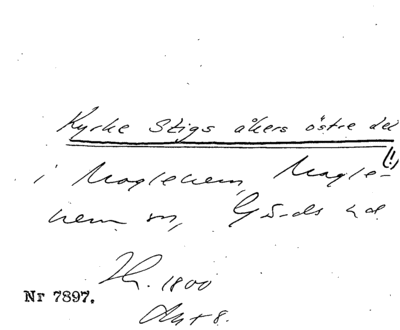 Kyrke Stigs åkers östre del
(!)
i Maglehem, Magle-
hem sn, Gärds hd
Ht. 1800
Nr 7897.
Akt 8.